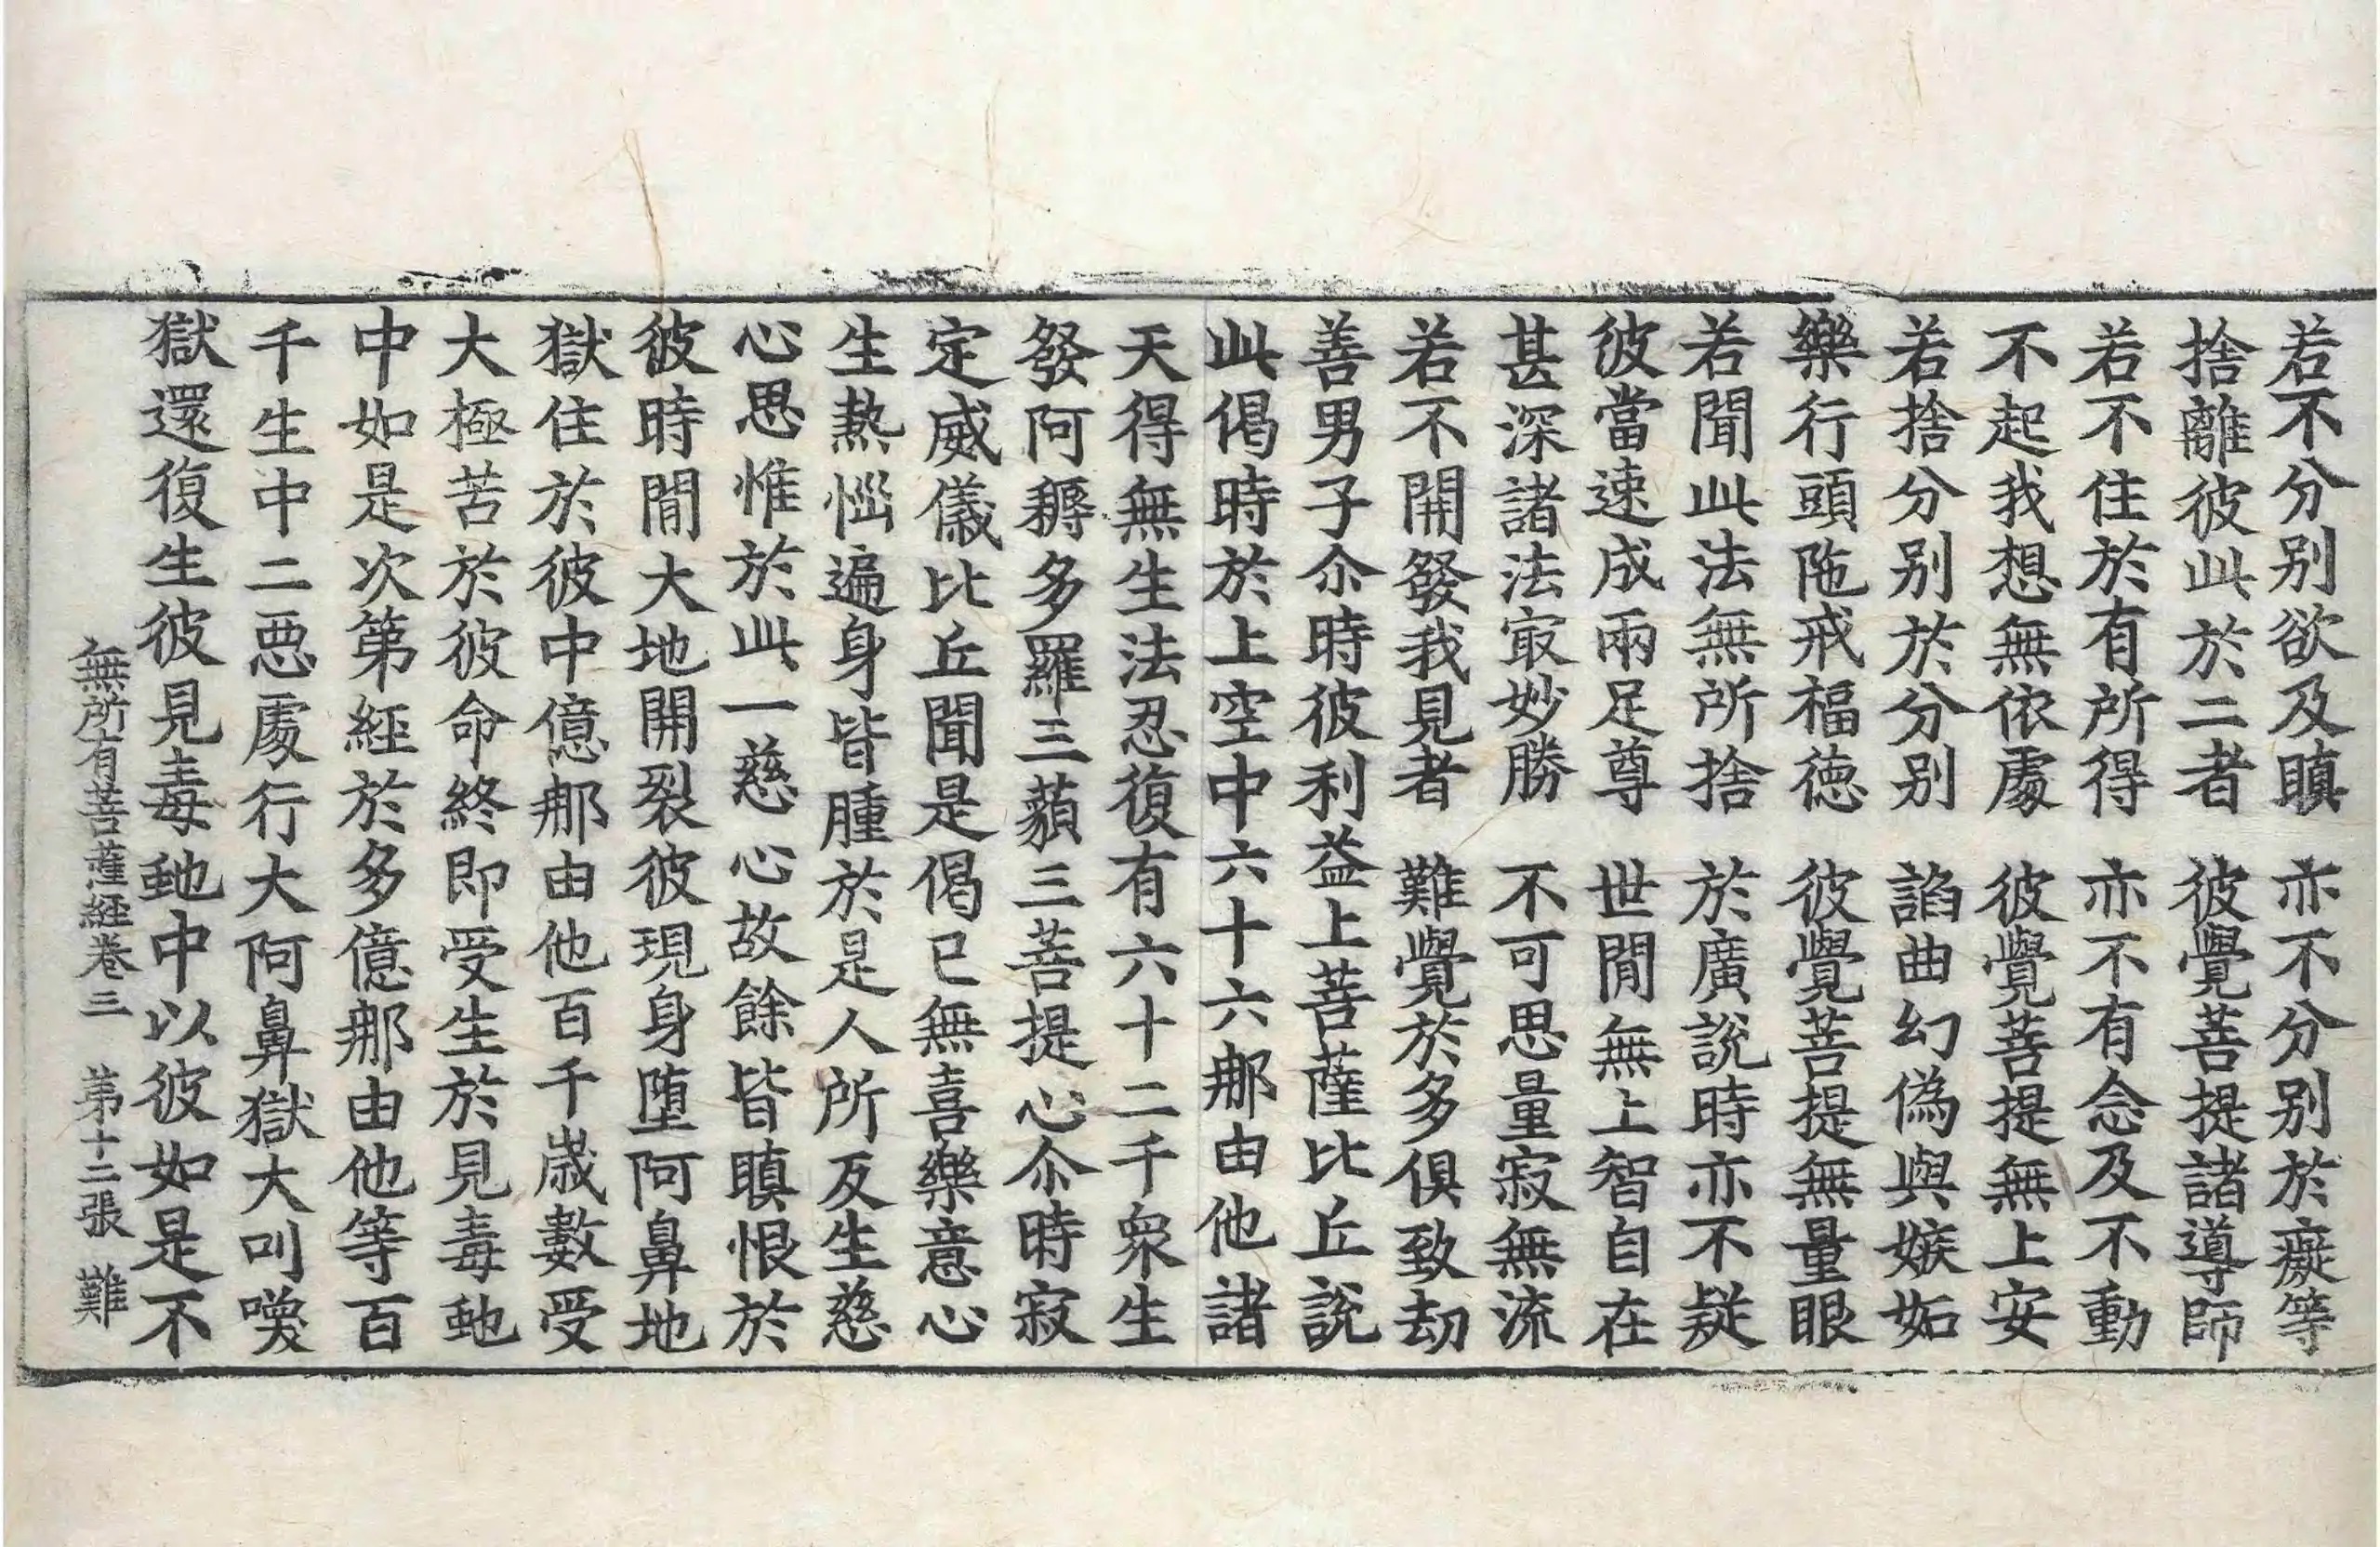 若不分別欲及瞋　亦不分別於癡等
捨離彼此於二者　彼覺菩提諸導師
若不住於有所得　亦不有念及不動
不起我想無依處　彼覺菩提無上安
若捨分別於分別　諂曲幻偽與嫉妬
樂行頭陁戒福德　彼覺菩提無量眼
若聞此法無所捨　於廣說時亦不疑
彼當速成兩足尊　世閒無上智自在
甚深諸法㝡妙勝　不可思量寂無流
若不開發我見者　難覺於多俱致劫
善男子尒時彼利益上菩薩比丘說
此偈時於上空中六十六那由他諸
天得無生法忍復有六十二千衆生
發阿耨多羅三藐三菩提心尒時寂
定威儀比丘聞是偈已無喜樂意心
生熱惱遍身皆腫於是人所反生慈
心思惟於此一慈心故餘皆瞋恨於
彼時閒大地開裂彼現身墮阿鼻地
獄住於彼中億那由他百千歲數受
大極苦於彼命終即受生於見毒虵
中如是次第經於多億那由他等百
千生中二惡處行大阿鼻獄大叫喚
獄還復生彼見毒虵中以彼如是不
無所有菩薩經卷三　第十二張　難